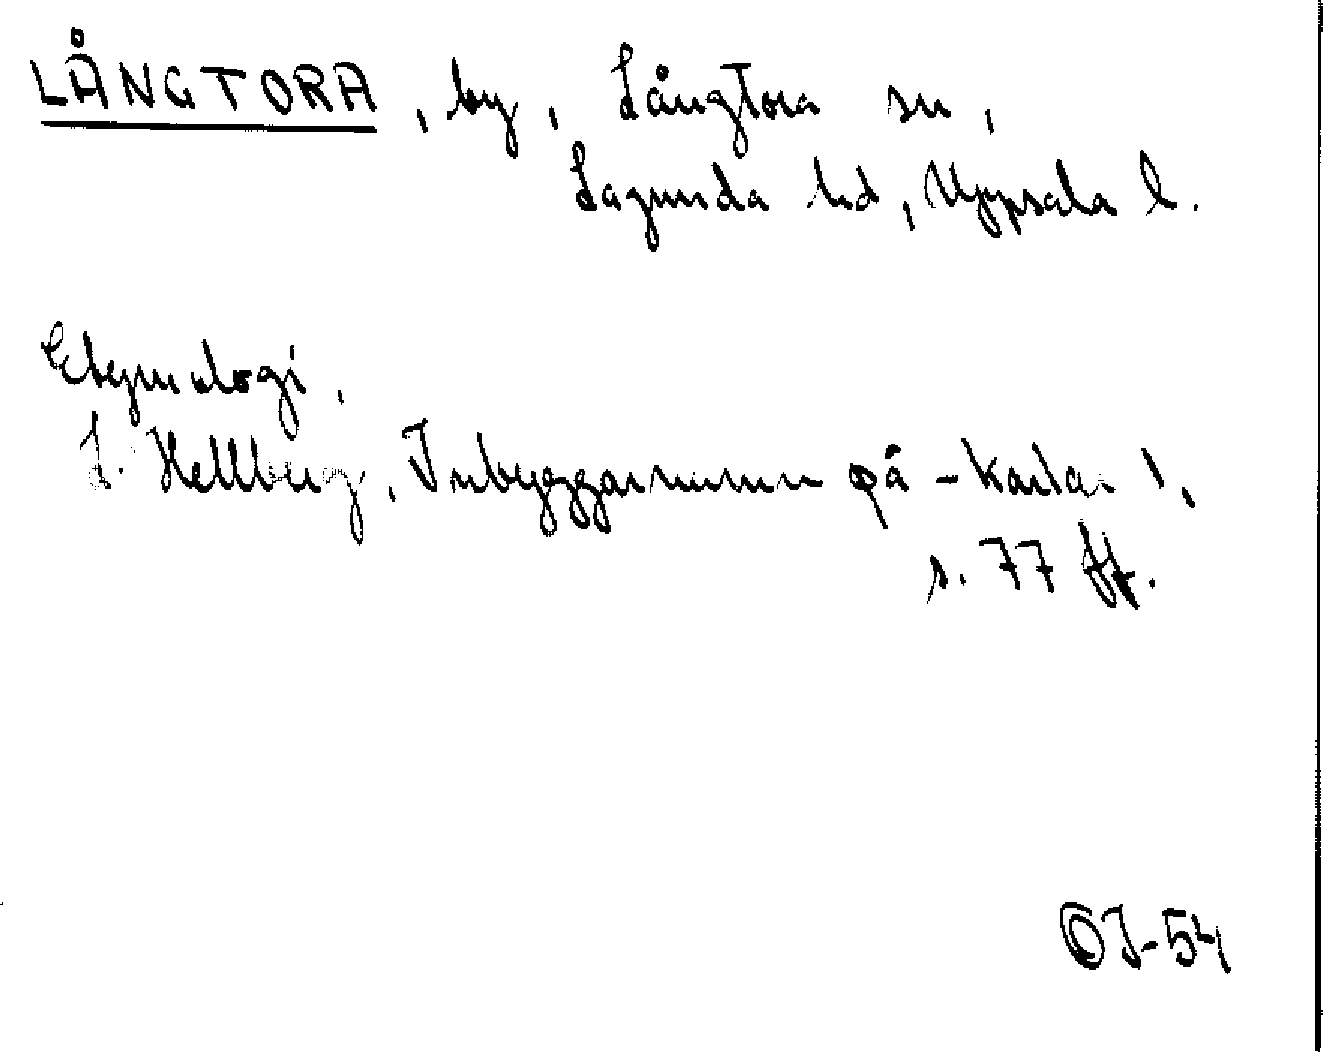 LÅNGTORA, by, Långtora sn,
Lagunda hd, Uppsala l.
Etymologi.
L. Hellberg, Inbyggarnamn på -karlar 1,
s. 77 ff.
OJ-54